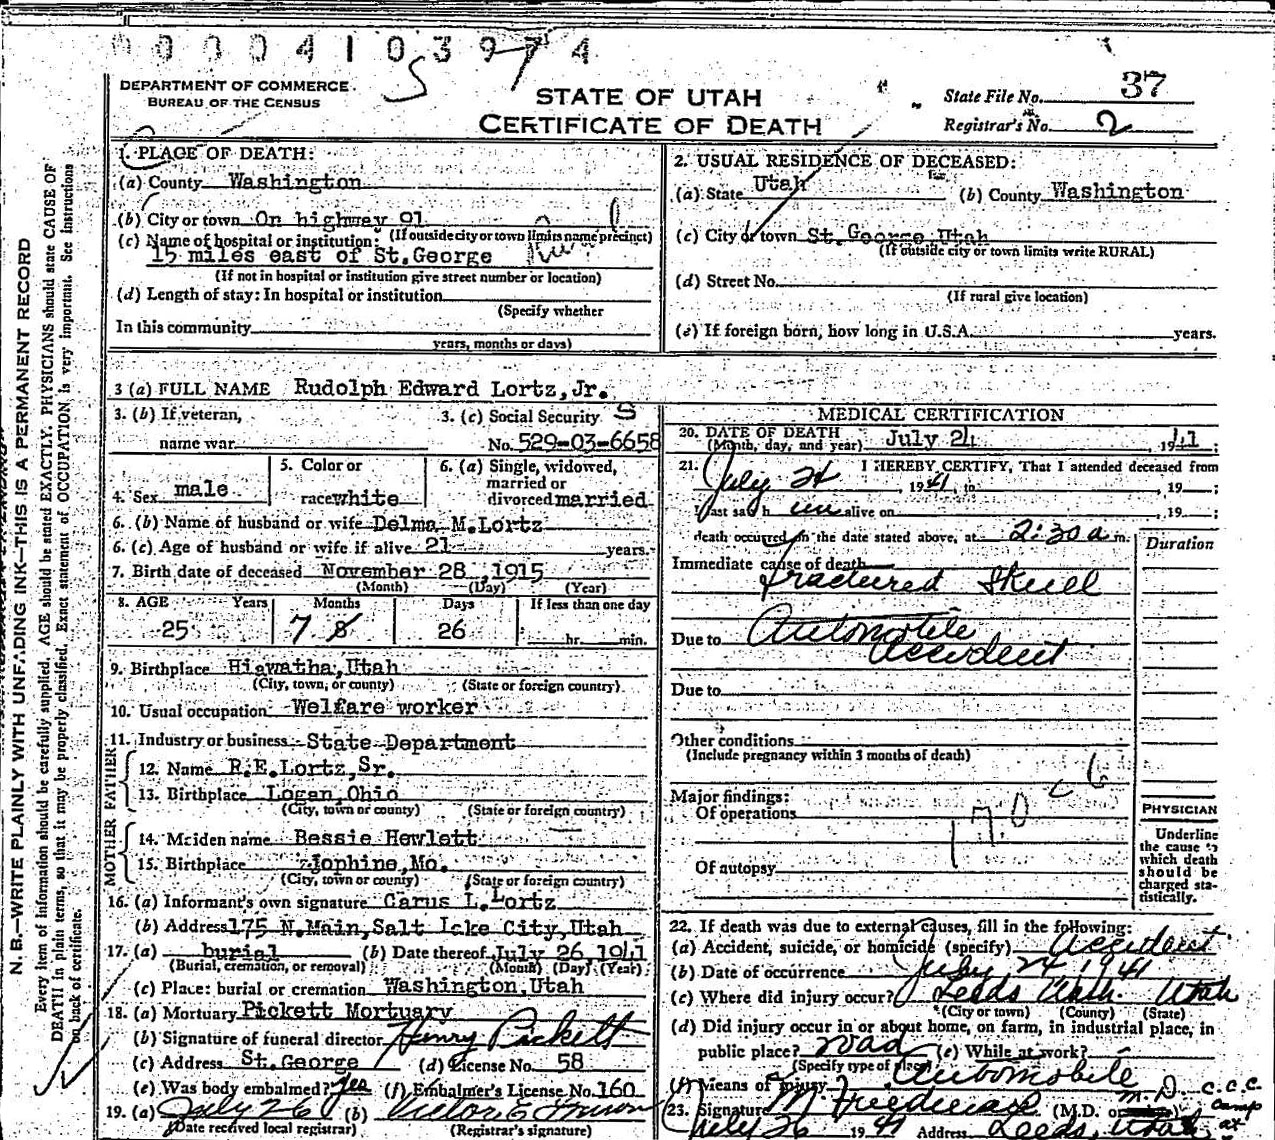 00004103974
S
DEPARTMENT OF COMMERCE
BUREAU OF THE CENSUS
STATE OF UTAH
CERTIFICATE OF DEATH
State File No. 37
Registrar's No. 2
1. PLACE OF DEATH:
(a) County Washington
(b) City or town On highway 91
(If outside city or town limits name precinct)
(c) Name of hospital or institution:
15 miles east of St.George
(If not in hospital or institution give street number or location)
(d) Length of stay: In hospital or institution
(Specify whether
In this community
years, months or days)
2. USUAL RESIDENCE OF DECEASED:
(a) State Utah (b) County Washington
(c) City or town St.George Utah
(If outside city or town limits write RURAL)
(d) Street No.
(If rural give location)
(e) If foreign born, how long in U.S.A. years.
3 (a) FULL NAME Rudolph Edward Lortz,Jr.
3. (b) If veteran,
name war
3. (c) Social Security S
No. 529-03-6658
4. Sex male
5. Color or
race white
6. (a) Single, widowed,
married or
divorced married
6. (b) Name of husband or wife Delma M.Lortz
6. (c) Age of husband or wife if alive 21 years.
7. Birth date of deceased November 28,1915
(Month) (Day) (Year)
8. AGE Years Months Days If less than one day
25 7 8 26 hr. min.
9. Birthplace Hiawatha,Utah
(City, town, or county) (State or foreign country)
10. Usual occupation Welfare worker
11. Industry or business State Department
FATHER
12. Name R.E.Lortz,Sr.
13. Birthplace Logan,Ohio
(City, town or county) (State or foreign country)
MOTHER
14. Maiden name Bessie Hewlett
15. Birthplace Jophine,Mo.
(City, town or county) (State or foreign country)
16. (a) Informant's own signature Carus L.Lortz
(b) Address 175 N.Main,Salt Lake City,Utah
17. (a) burial (b) Date thereof July 26,1941
(Burial, cremation, or removal) (Month) (Day) (Year)
(c) Place: burial or cremation Washington,Utah
18. (a) Mortuary Pickett Mortuary
(b) Signature of funeral director Henry Pickett
(c) Address St.George (d) License No. 58
(e) Was body embalmed? yes (f) Embalmer's License No. 160
19. (a) July 26 (b)
(Date received local registrar) (Registrar's signature)
MEDICAL CERTIFICATION
20. DATE OF DEATH July 24 1941;
(Month, day, and year)
21. I HEREBY CERTIFY, That I attended deceased from
July 24, 1941, to , 19 ;
I last saw h im alive on , 19 ;
death occurred on the date stated above, at 2:30 a m.
Duration
Immediate cause of death
fractured Skull
Due to Automobile
accident
Due to
Other conditions
(Include pregnancy within 3 months of death)
Major findings:
Of operations
170 c 6
Of autopsy
PHYSICIAN
Underline
the cause to
which death
should be
charged sta-
tistically.
22. If death was due to external causes, fill in the following:
(a) Accident, suicide, or homicide (specify) accident
(b) Date of occurrence July 24 1941
(c) Where did injury occur? Leeds Wash. Utah
(City or town) (County) (State)
(d) Did injury occur in or about home, on farm, in industrial place, in
public place? road (e) While at work?
(Specify type of place)
(f) Means of injury Automobile
23. Signature (M.D. or M.D. C.C.C. Camp at
July 26 1941 Address Leeds, Utah
N. B.—WRITE PLAINLY WITH UNFADING INK—THIS IS A PERMANENT RECORD
Every item of information should be carefully supplied. AGE should be stated EXACTLY. PHYSICIANS should state CAUSE OF
DEATH in plain terms, so that it may be properly classified. Exact statement of OCCUPATION is very important. See Instructions
on back of certificate.